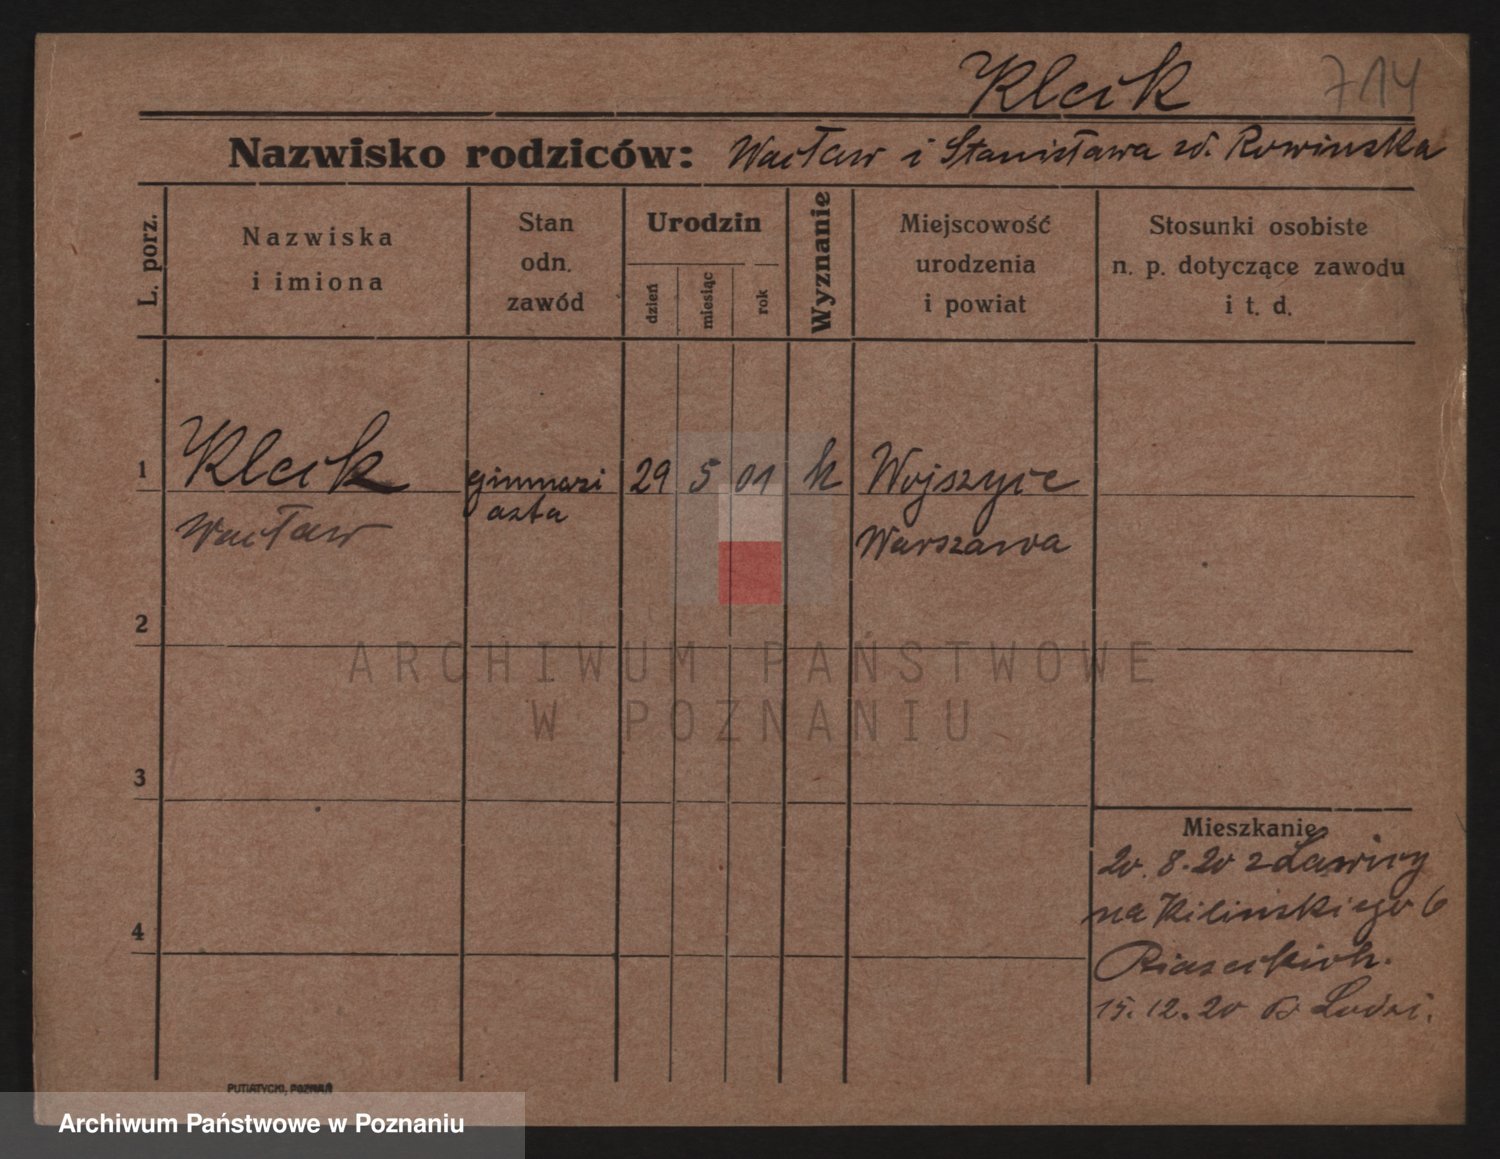 Kleik 714
Nazwisko rodziców: Wacław i Stanisława zd. Rowinska
L. porz.
Nazwiska
i imiona
Stan
odn.
zawód
Urodzin
dzień
miesiąc
rok
Wyznanie
Miejscowość
urodzenia
i powiat
Stosunki osobiste
n. p. dotyczące zawodu
i t. d.
1 Kleik gimnazi 29 5 01 k Wojszyce
Wacław asta Warszawa
2
ARCHIWUM PAŃSTWOWE
W POZNANIU
3
Mieszkanie
20. 8. 20 z Ławicy
4 na Kilinskiego 6
Piaseckich.
15. 12. 20 Lodzi.
PUTIATYCKI, POZNAŃ
Archiwum Państwowe w Poznaniu